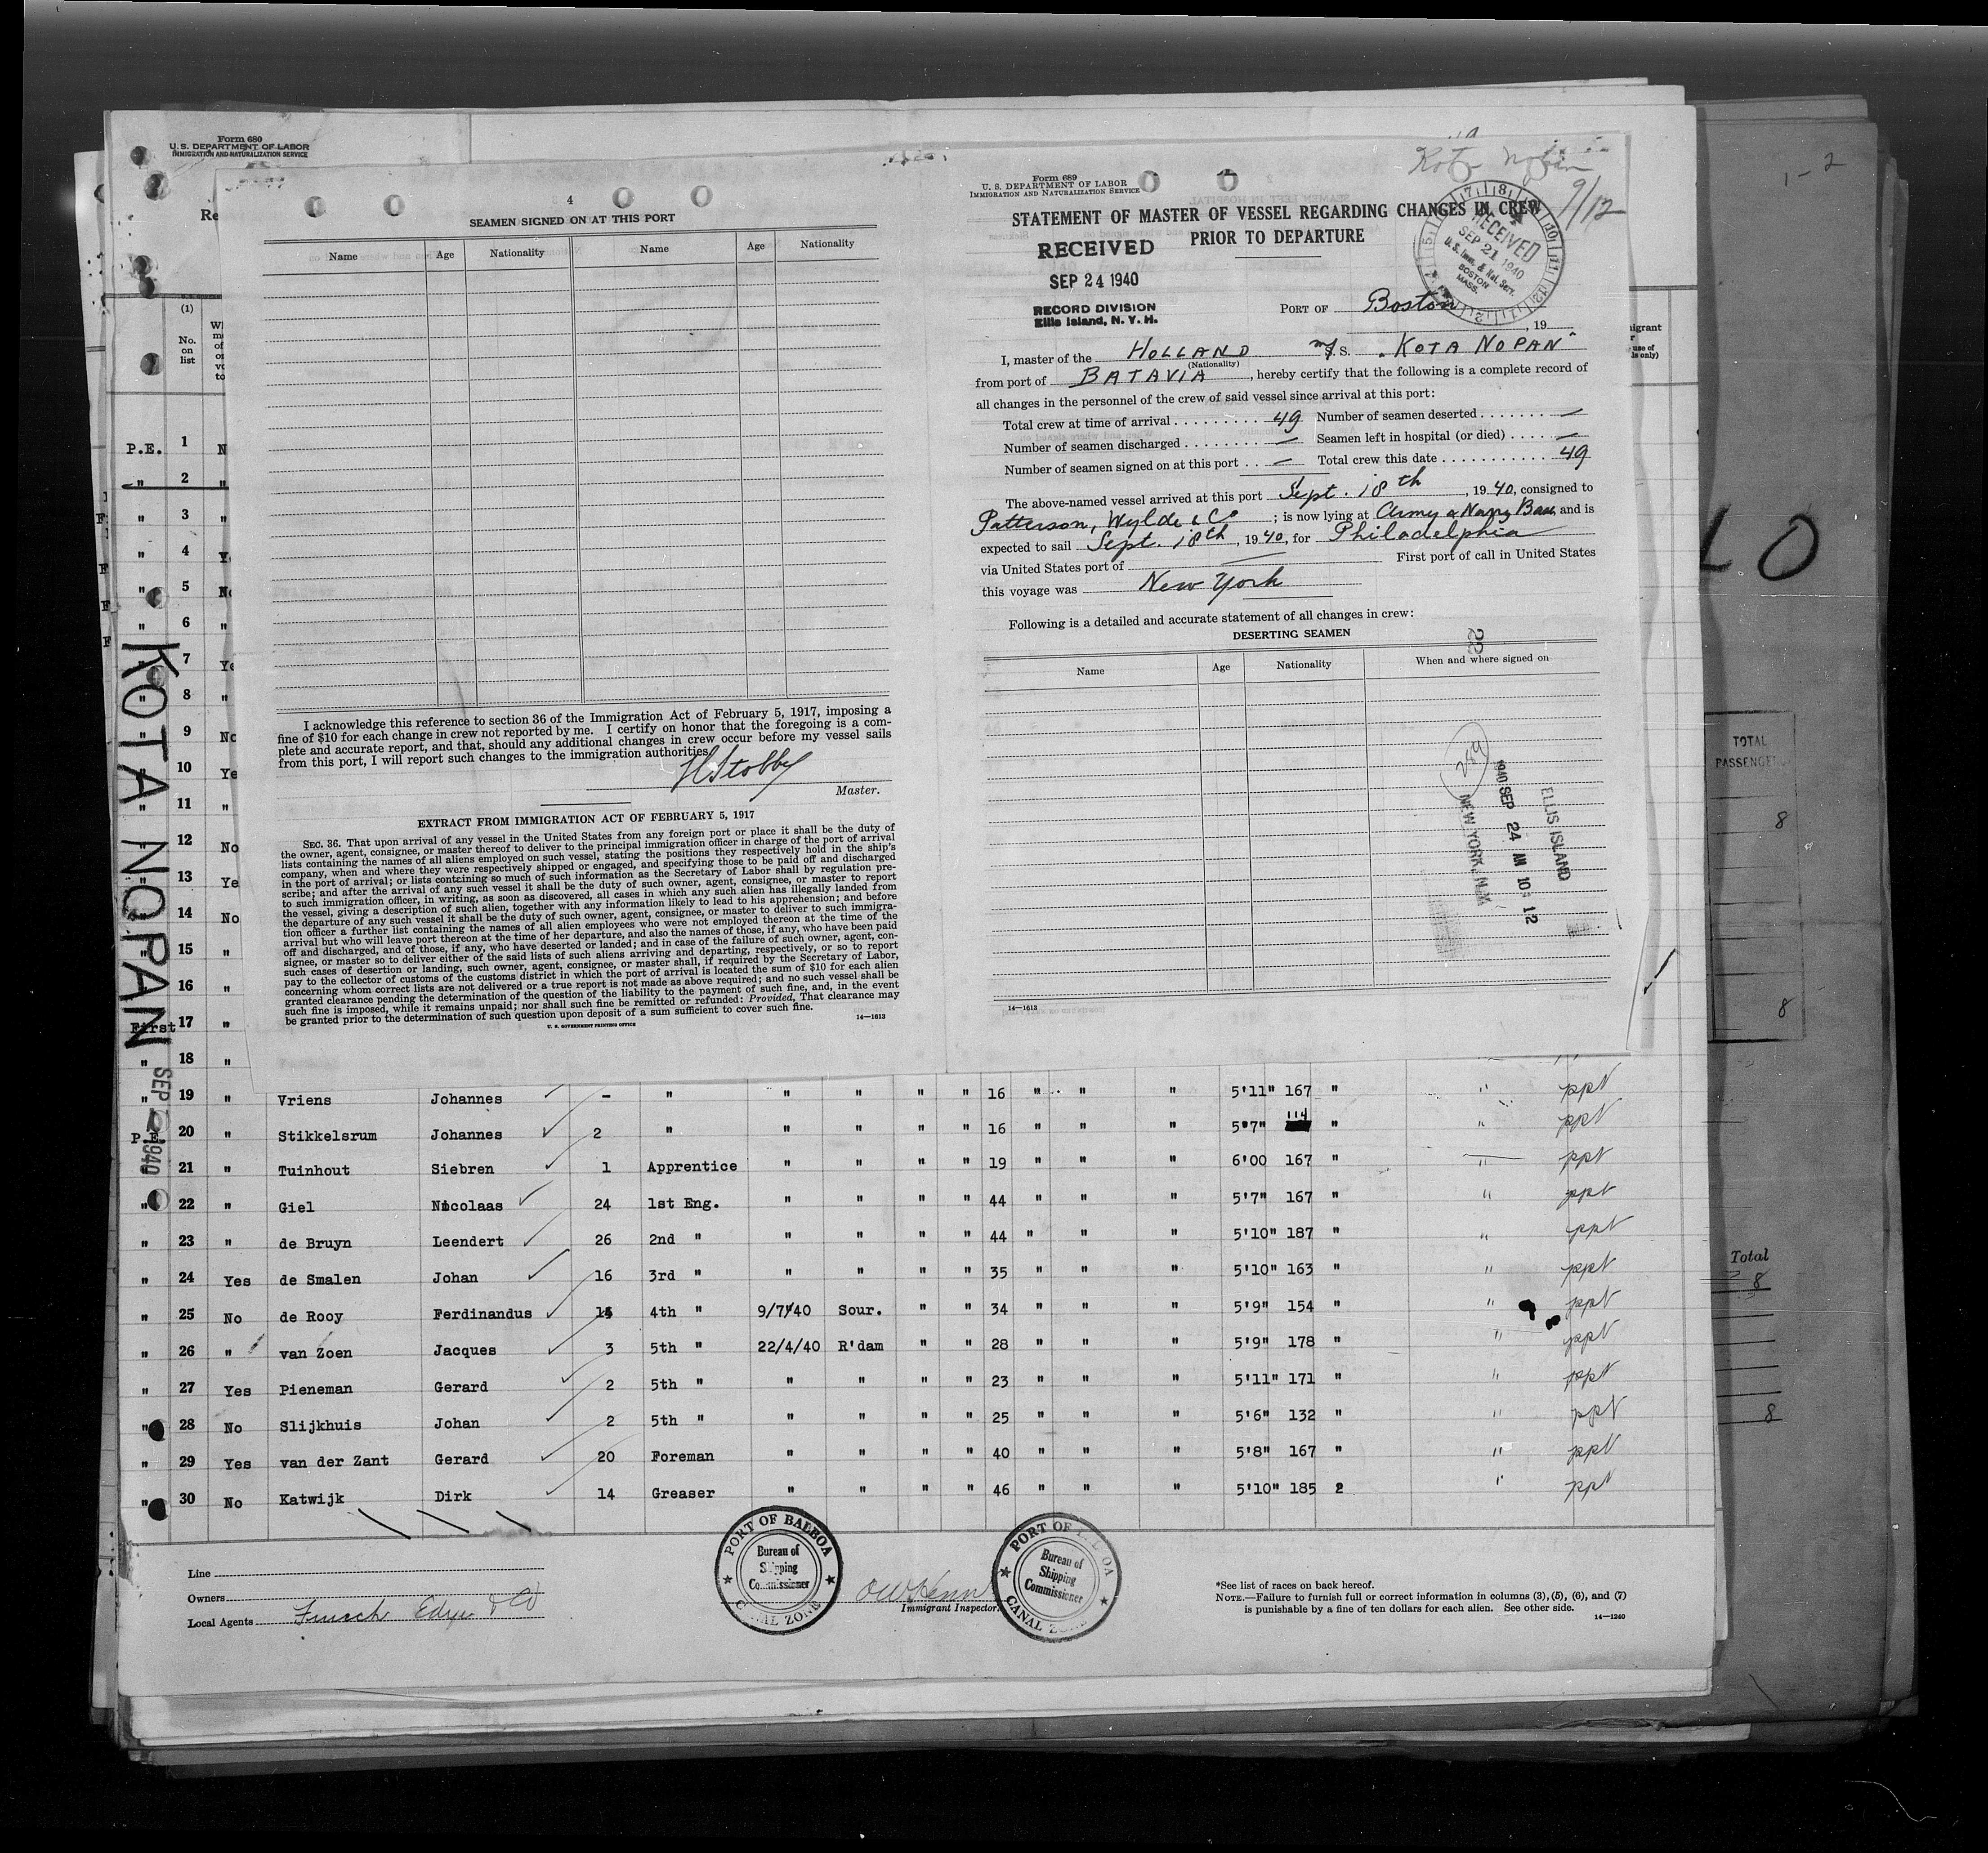 Form 680
U. S. DEPARTMENT OF LABOR
IMMIGRATION AND NATURALIZATION SERVICE
Re
(1)
No.
on
list
4
SEAMEN SIGNED ON AT THIS PORT
Name Age Nationality Name Age Nationality
I acknowledge this reference to section 36 of the Immigration Act of February 5, 1917, imposing a
fine of $10 for each change in crew not reported by me. I certify on honor that the foregoing is a com-
plete and accurate report, and that, should any additional changes in crew occur before my vessel sails
from this port, I will report such changes to the immigration authorities.
HStobby
Master.
EXTRACT FROM IMMIGRATION ACT OF FEBRUARY 5, 1917
SEC. 36. That upon arrival of any vessel in the United States from any foreign port or place it shall be the duty of
the owner, agent, consignee, or master thereof to deliver to the principal immigration officer in charge of the port of arrival
lists containing the names of all aliens employed on such vessel, stating the positions they respectively hold in the ship's
company, when and where they were respectively shipped or engaged, and specifying those to be paid off and discharged
in the port of arrival; or lists containing so much of such information as the Secretary of Labor shall by regulation pre-
scribe; and after the arrival of any such vessel it shall be the duty of such owner, agent, consignee, or master to report
to such immigration officer, in writing, as soon as discovered, all cases in which any such alien has illegally landed from
the vessel, giving a description of such alien, together with any information likely to lead to his apprehension; and before
the departure of any such vessel it shall be the duty of such owner, agent, consignee, or master to deliver to such immigra-
tion officer a further list containing the names of all alien employees who were not employed thereon at the time of the
arrival but who will leave port thereon at the time of her departure, and also the names of those, if any, who have been paid
off and discharged, and of those, if any, who have deserted or landed; and in case of the failure of such owner, agent, con-
signee, or master so to deliver either of the said lists of such aliens arriving and departing, respectively, or so to report
such cases of desertion or landing, such owner, agent, consignee, or master shall, if required by the Secretary of Labor,
pay to the collector of customs of the customs district in which the port of arrival is located the sum of $10 for each alien
concerning whom correct lists are not delivered or a true report is not made as above required; and no such vessel shall be
granted clearance pending the determination of the question of the liability to the payment of such fine, and, in the event
such fine is imposed, while it remains unpaid; nor shall such fine be remitted or refunded: Provided, That clearance may
be granted prior to the determination of such question upon deposit of a sum sufficient to cover such fine.
U. S. GOVERNMENT PRINTING OFFICE 14—1613
Form 689
U. S. DEPARTMENT OF LABOR
IMMIGRATION AND NATURALIZATION SERVICE
Kota Nopan
9/12
STATEMENT OF MASTER OF VESSEL REGARDING CHANGES IN CREW
PRIOR TO DEPARTURE
RECEIVED
SEP 24 1940
RECORD DIVISION
Ellis Island, N. Y. H.
RECEIVED
SEP 21 1940
U. S. Imm. & Nat. Serv.
BOSTON
MASS.
PORT OF Boston
, 19
I, master of the HOLLAND M/S. "KOTA NOPAN"
(Nationality)
from port of BATAVIA, hereby certify that the following is a complete record of
all changes in the personnel of the crew of said vessel since arrival at this port:
Total crew at time of arrival 49 Number of seamen deserted —
Number of seamen discharged — Seamen left in hospital (or died) —
Number of seamen signed on at this port — Total crew this date 49
The above-named vessel arrived at this port Sept. 18th, 1940, consigned to
Patterson, Wylde & Co; is now lying at Army & Navy Base, and is
expected to sail Sept. 18th, 1940, for Philadelphia
via United States port of — First port of call in United States
this voyage was New York
Following is a detailed and accurate statement of all changes in crew:
DESERTING SEAMEN
22
Name Age Nationality When and where signed on
259
ELLIS ISLAND
1940 SEP 24 AM 10:12
NEW YORK, N.Y.
14—1613
KOTA NOPAN
SEP 1940
P.E. 1 N
" 2 "
" 3 "
" 4 Y
" 5 No
" 6 "
" 7 Ye
" 8 "
" 9 No
" 10 Ye
" 11 "
" 12 No
" 13 Ye
" 14 No
" 15 "
" 16 "
First 17 "
" 18 "
" 19 " Vriens Johannes - " " " " " 16 " " " 5'11" 167 " " ppt
P.E. 20 " Stikkelsrum Johannes 2 " " " " " 16 " " " 5'7" 114 " " ppt
" 21 " Tuinhout Siebren 1 Apprentice " " " " 19 " " " 6'00 167 " " ppt
" 22 " Giel Nicolaas 24 1st Eng. " " " " 44 " " " 5'7" 167 " " ppt
" 23 " de Bruyn Leendert 26 2nd " " " " " 44 " " " 5'10" 187 " " ppt
" 24 Yes de Smalen Johan 16 3rd " " " " " 35 " " " 5'10" 163 " " ppt
" 25 No de Rooy Ferdinandus 15 4th " 9/7/40 Sour. " " 34 " " " 5'9" 154 " " ppt
" 26 " van Zoen Jacques 3 5th " 22/4/40 R'dam " " 28 " " " 5'9" 178 " " ppt
" 27 Yes Pieneman Gerard 2 5th " " " " " 23 " " " 5'11" 171 " " ppt
" 28 No Slijkhuis Johan 2 5th " " " " " 25 " " " 5'6" 132 " " ppt
" 29 Yes van der Zant Gerard 20 Foreman " " " " 40 " " " 5'8" 167 " " ppt
" 30 No Katwijk Dirk 14 Greaser " " " " 46 " " " 5'10" 185 2 " ppt
Line
Owners
Local Agents
PORT OF BALBOA
Bureau of
Shipping
Commissioner
CANAL ZONE
Immigrant Inspector.
PORT OF BALBOA
Bureau of
Shipping
Commissioner
CANAL ZONE
*See list of races on back hereof.
NOTE.—Failure to furnish full or correct information in columns (3), (5), (6), and (7)
is punishable by a fine of ten dollars for each alien. See other side.
14—1240
1-2
LO
TOTAL
PASSENGE
8
8
Total
8
8